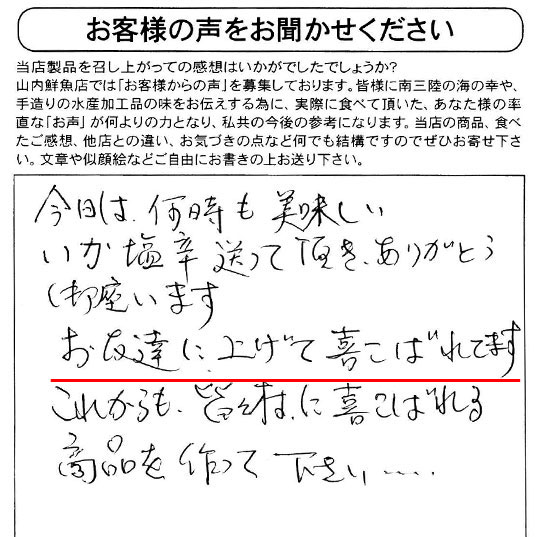 お客様の声をお聞かせください
当店製品を召し上がっての感想はいかがでしたでしょうか?
山内鮮魚店では「お客様からの声」を募集しております。皆様に南三陸の海の幸や、
手造りの水産加工品の味をお伝えする為に、実際に食べて頂いた、あなた様の率
直な「お声」が何よりの力となり、私共の今後の参考になります。当店の商品、食べ
たご感想、他店との違い、お気づきの点など何でも結構ですのでぜひお寄せ下さ
い。文章や似顔絵などご自由にお書きの上お送り下さい。
今日は、何時も美味しい
いか塩辛送って頂き、ありがとう
御座います
お友達に、上げて喜こばれてます
これからも、皆々様に喜こばれる
商品を作って下さい……